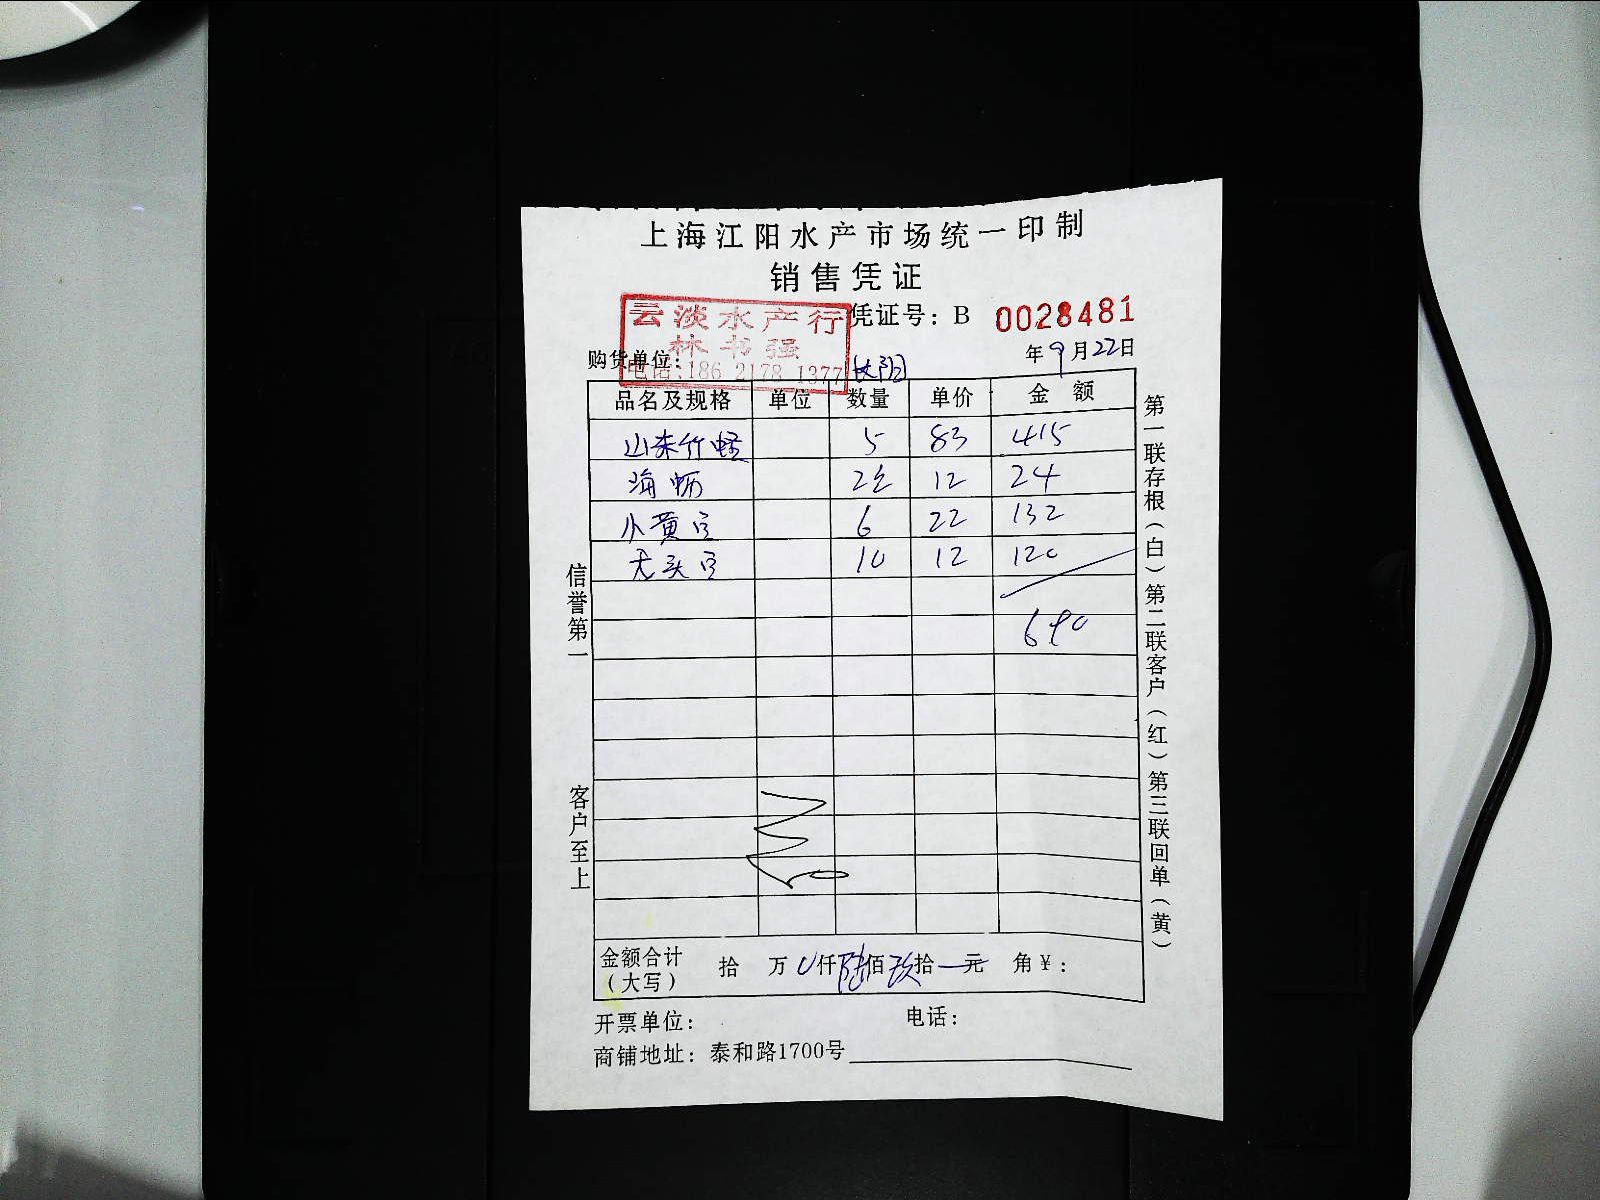 上海江阳水产市场统一印制
销售凭证
云淡水产行
林书强
电话:186 2178 1377
凭证号: B 0028481
购货单位: 长阳
年9月22日
品名及规格 单位 数量 单价 金额
山东竹蛏 5 83 415
海蛎 2 12 24
小黄 6 22 132
无头 10 12 120
690
信誉第一
客户至上
第一联存根(白)第二联客户(红)第三联回单(黄)
金额合计(大写) 拾 万 0仟陆佰玖拾 元 角¥:
开票单位: 电话:
商铺地址: 泰和路1700号